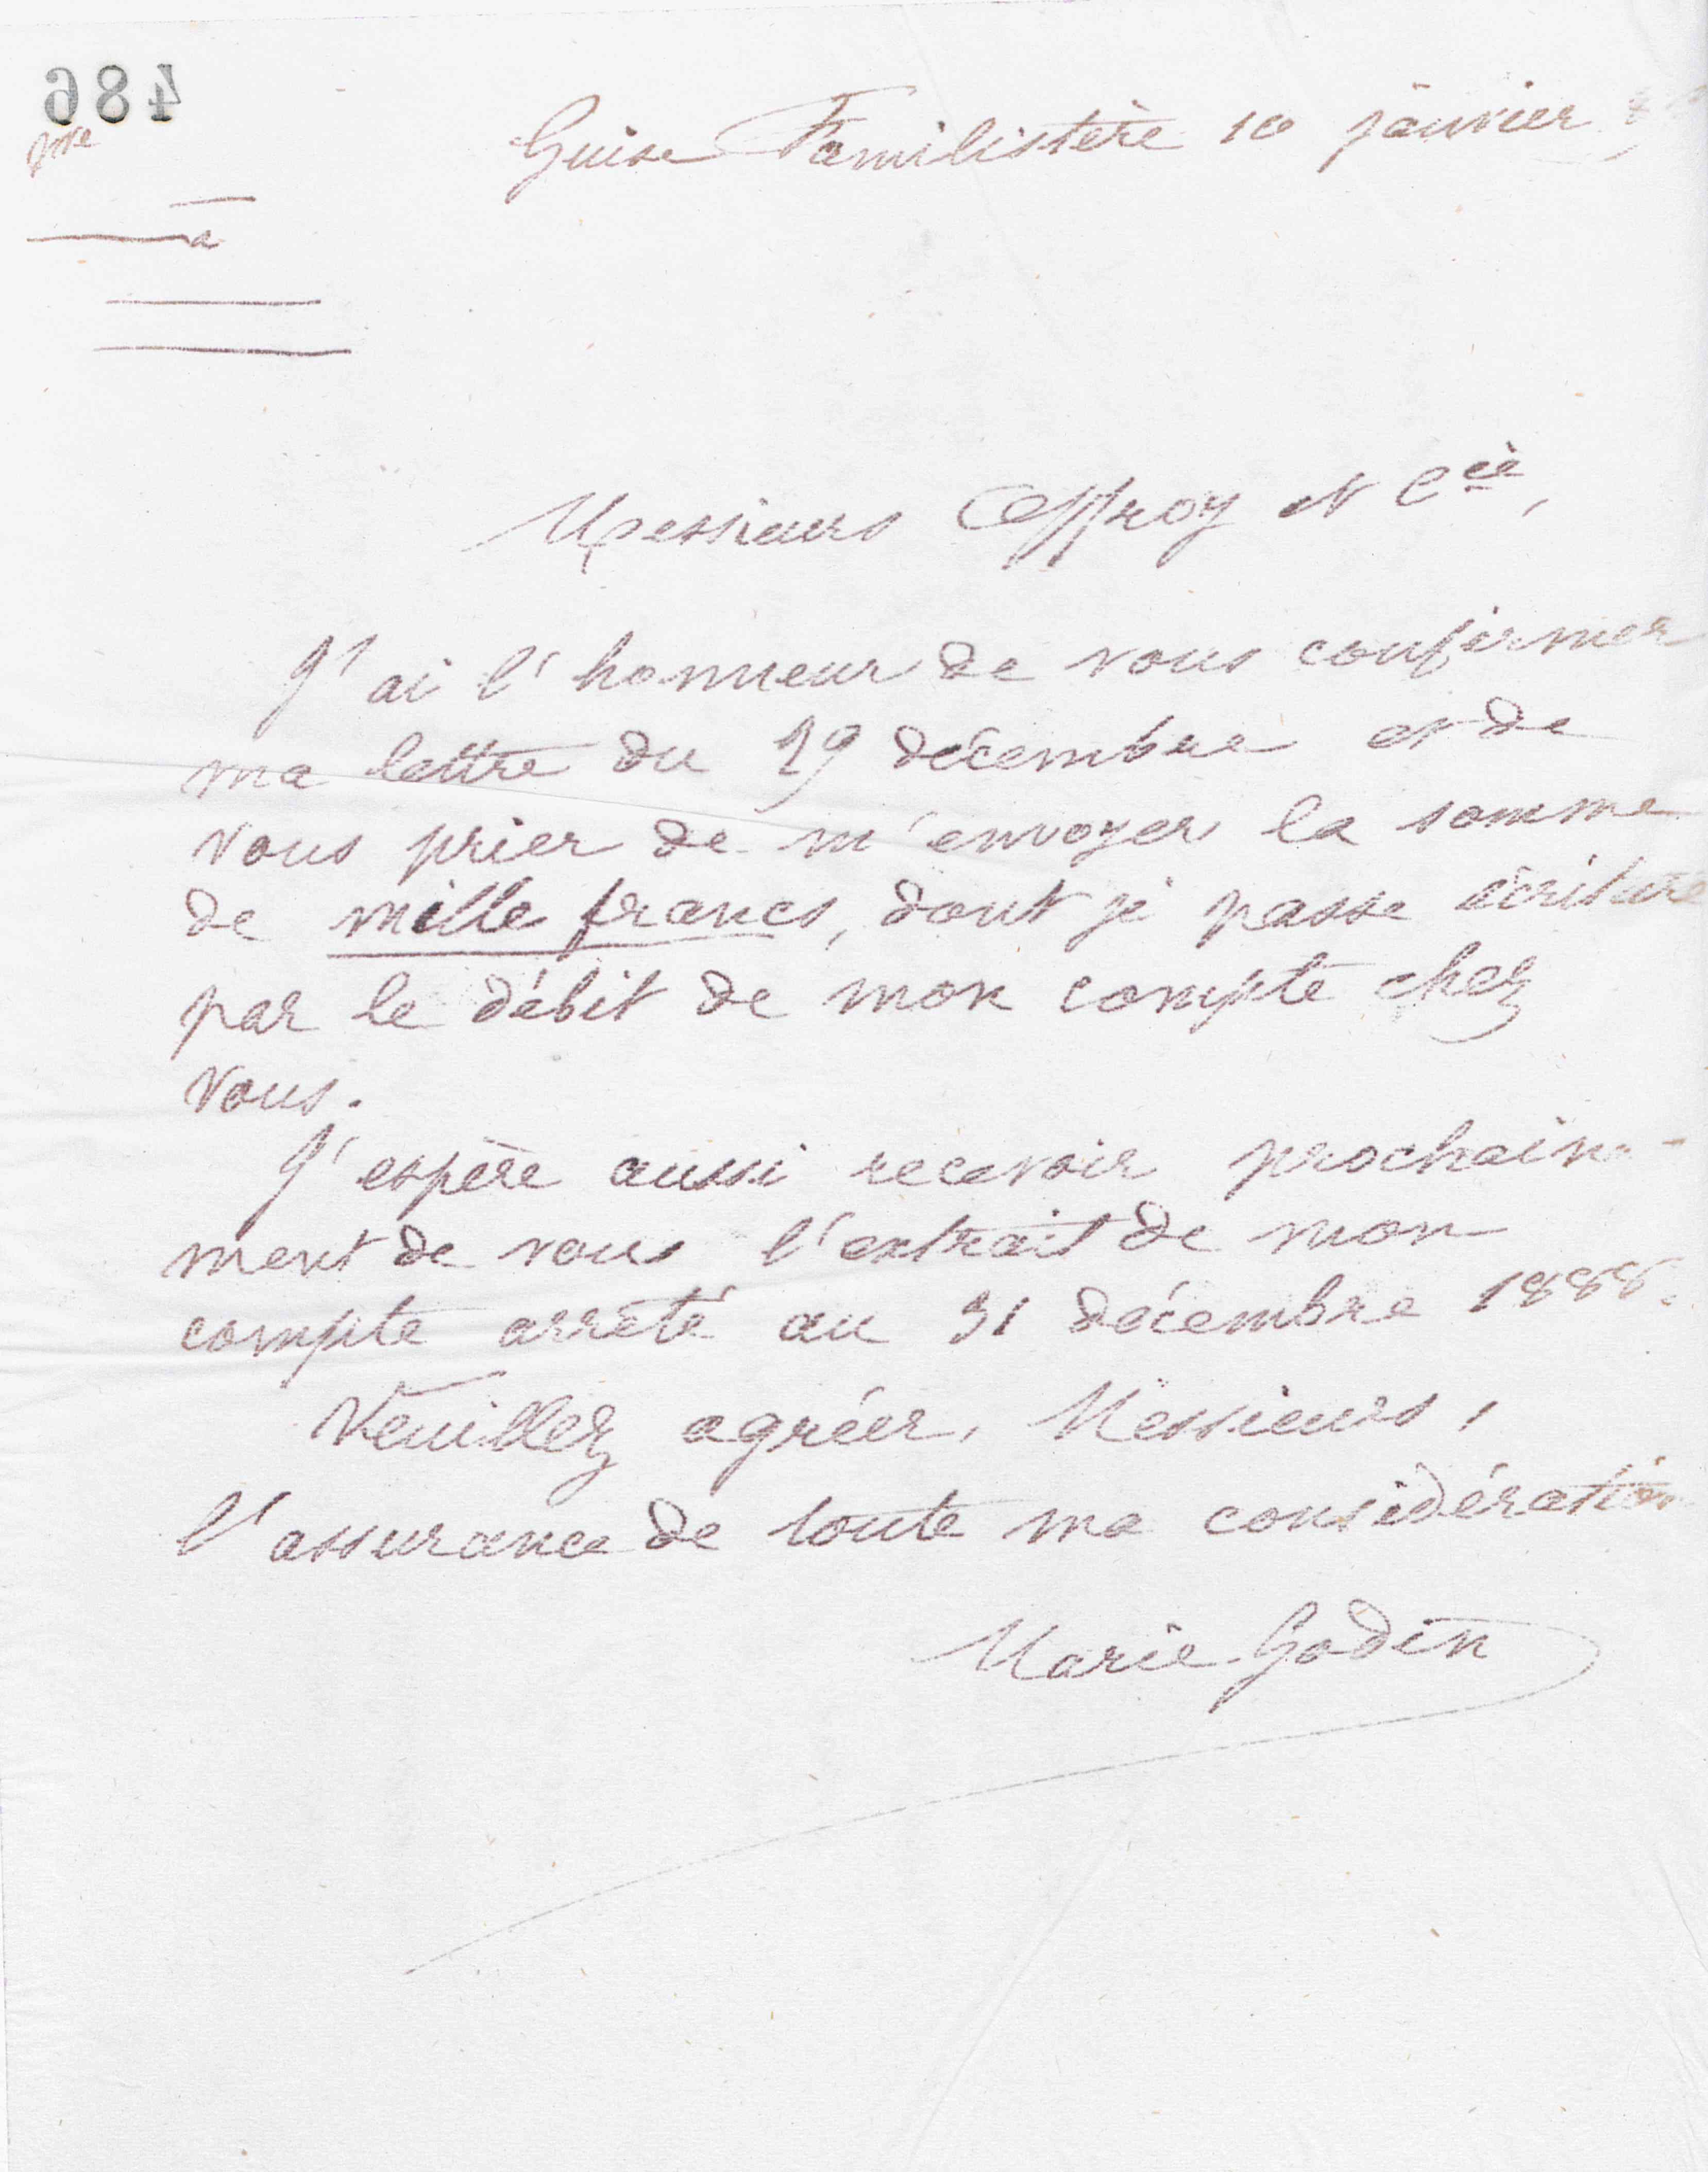 486
Guise Familistère 10 janvier
Messieurs Offroy et Cie,
J'ai l'honneur de vous confirmer
ma lettre du 29 décembre et de
vous prier de m'envoyer la somme
de mille francs, dont je passe écriture
par le débit de mon compte chez
vous.
J'espère aussi recevoir prochaine-
ment de vous l'extrait de mon
compte arrêté au 31 décembre 1888.
Veuillez agréer, Messieurs,
l'assurance de toute ma considération
Marie Godin